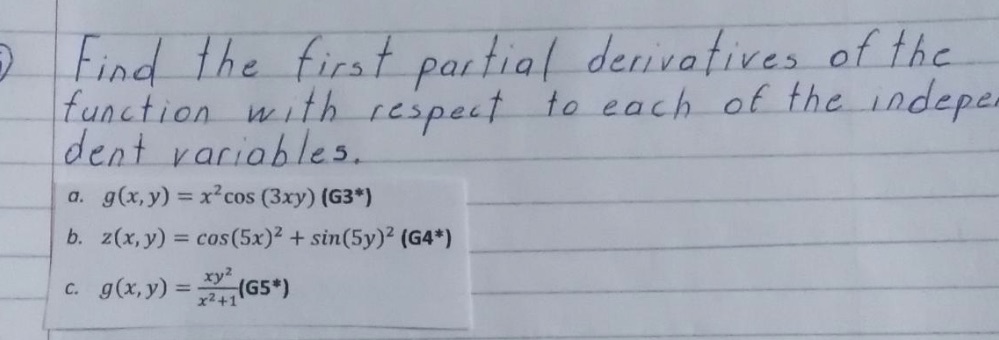 Find the first partial derivatives of the
function with respect to each of the indepen
dent variables.
a. g(x, y) = x² cos (3xy) (G3*)
b. z(x, y) = cos(5x)² + sin(5y)² (G4*)
c. g(x, y) = xy²/x²+1 (G5*)